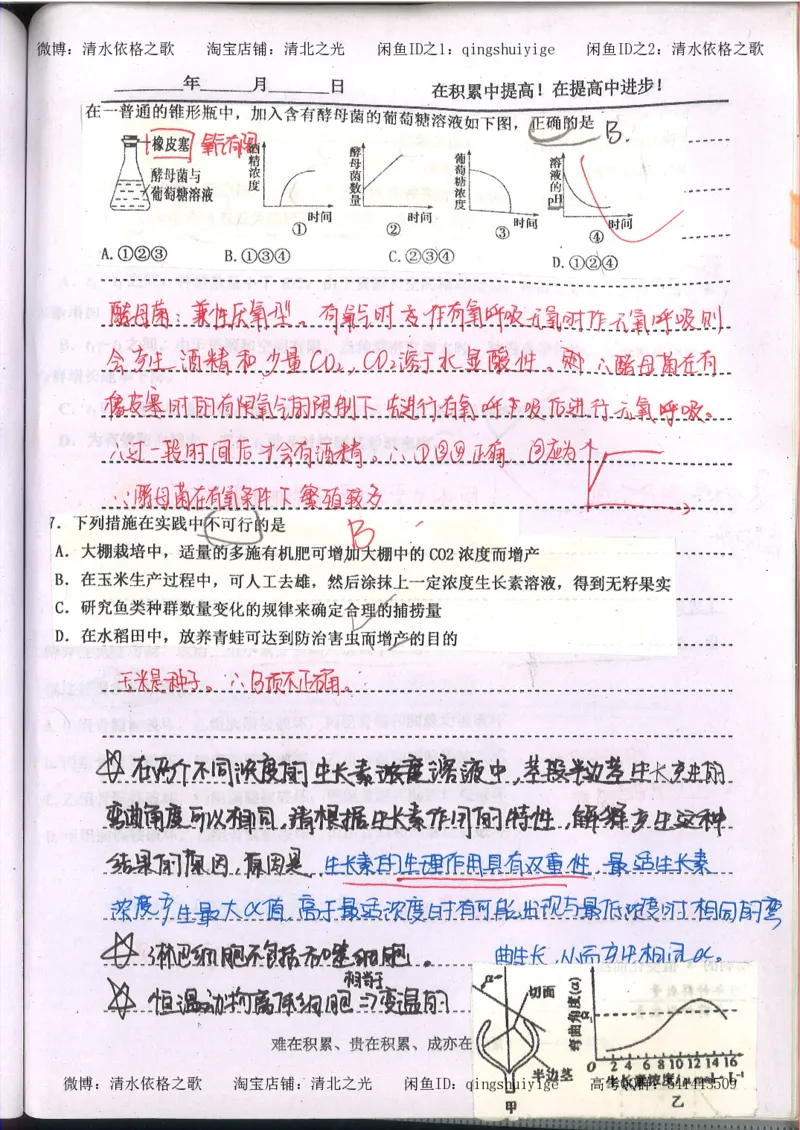 微博：清水依格之歌 淘宝店铺：清北之光 闲鱼ID之1：qingshuiyige 闲鱼ID之2：清水依格之歌
年 月 日 在积累中提高！在提高中进步！
在一普通的锥形瓶中，加入含有酵母菌的葡萄糖溶液如下图，正确的是 B.
橡皮塞 氧气有限
酵母菌与
葡萄糖溶液
酒精浓度 时间 ①
酵母菌数量 时间 ②
葡萄糖浓度 时间 ③
溶液的pH 时间 ④
A.①②③ B.①③④ C.②③④ D.①②④
酵母菌：兼性厌氧型。有氧时支作有氧呼吸无氧时作无氧呼吸则
会产生酒精和少量CO2，CO2溶于水显酸性。则∴酵母菌在有
橡皮塞时的有限氧气的限制下先进行有氧呼吸后进行无氧呼吸。
∴过一段时间后才会有酒精。∴①③④正确 ②应为
∴酵母菌在有氧条件下繁殖较多
7. 下列措施在实践中不可行的是 B
A. 大棚栽培中，适量的多施有机肥可增加大棚中的CO2浓度而增产
B. 在玉米生产过程中，可人工去雄，然后涂抹上一定浓度生长素溶液，得到无籽果实
C. 研究鱼类种群数量变化的规律来确定合理的捕捞量
D. 在水稻田中，放养青蛙可达到防治害虫而增产的目的
玉米是种子。∴B项不正确。
☆ 在两个不同浓度的生长素浓度溶液中，茎段半边茎生长产生的
弯曲角度可以相同，请根据生长素作用的特性，解释产生这种
结果的原因，原因是 生长素的生理作用具有双重性，最适生长素
浓度产生最大α值，高于最适浓度时有可能出现与最低浓度时相同的弯
曲生长，从而产生相同α。
☆ 淋巴细胞不包括吞噬细胞。
☆ 恒温动物离体细胞相当于变温的
α 切面 半边茎 甲
弯曲角度(α) 0 2 4 6 8 10 12 14 16
生长素浓度 乙
难在积累、贵在积累、成亦在
微博：清水依格之歌 淘宝店铺：清北之光 闲鱼ID：qingshuiyige